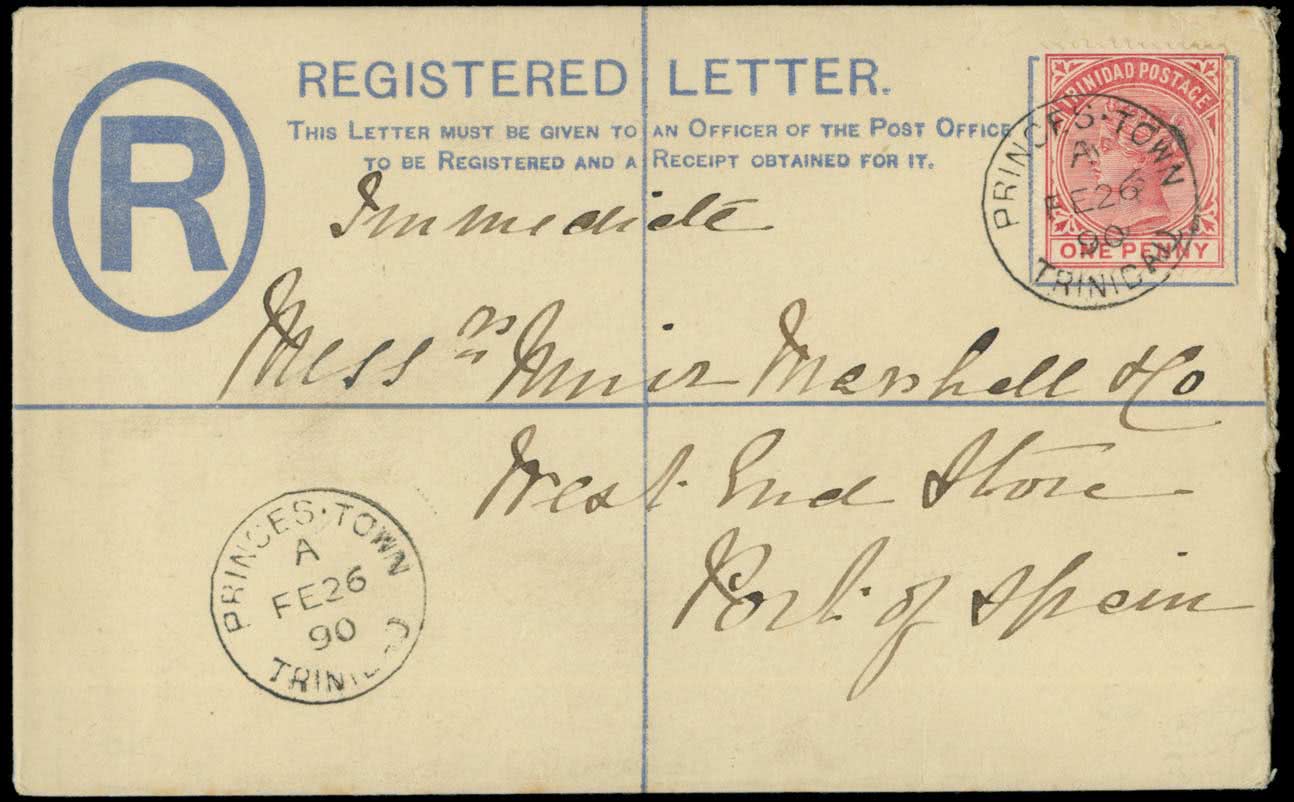 R
REGISTERED LETTER.
THIS LETTER MUST BE GIVEN TO AN OFFICER OF THE POST OFFICE
TO BE REGISTERED AND A RECEIPT OBTAINED FOR IT.
TRINIDAD POSTAGE
ONE PENNY
PRINCES·TOWN
A
FE26
90
TRINIDAD
Immediate
Mess rs Muir Marshall & Co
West End Store
Port of Spain
PRINCES·TOWN
A
FE26
90
TRINIDAD